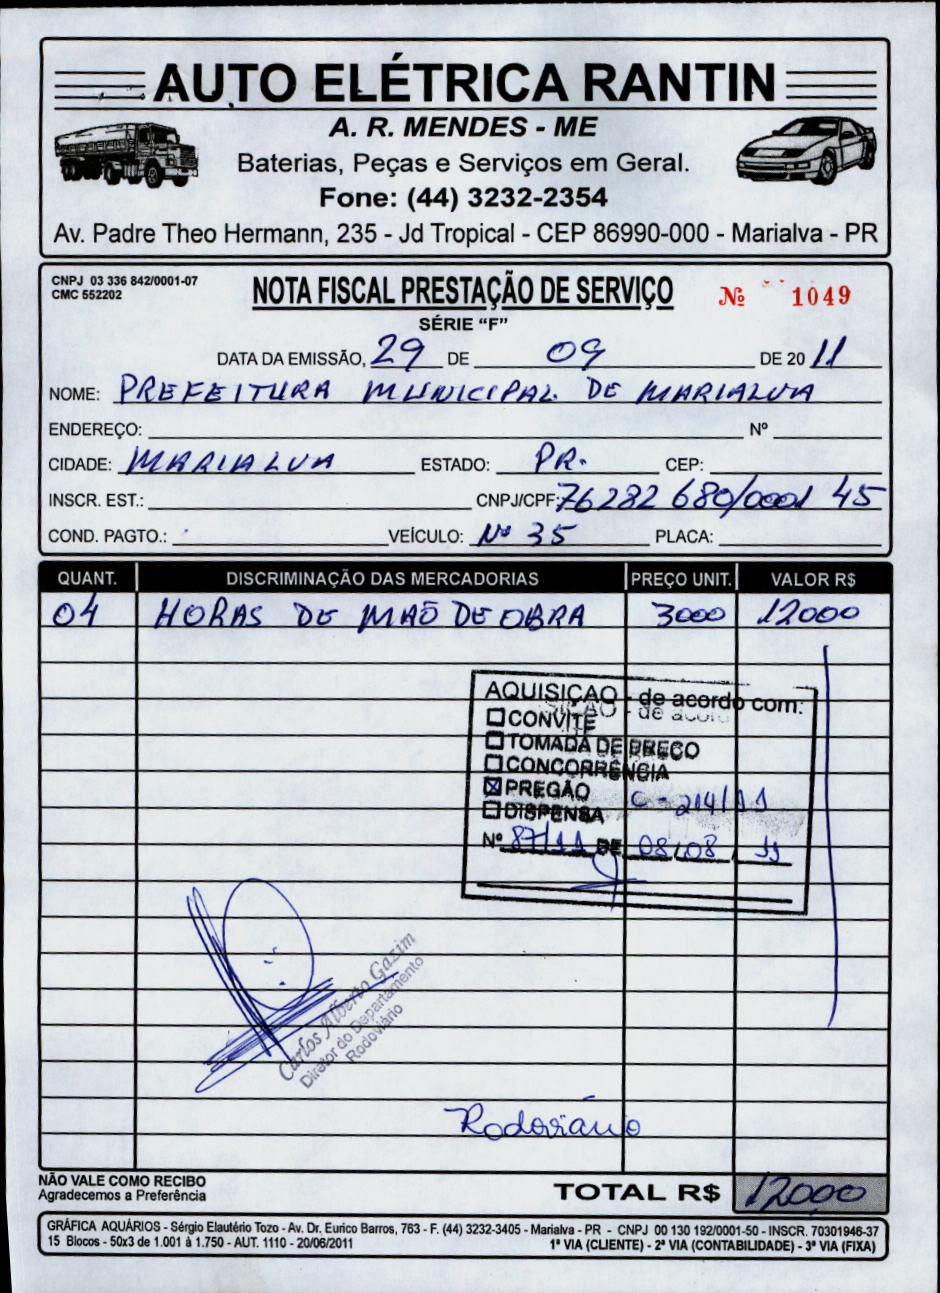 AUTO ELÉTRICA RANTIN
A. R. MENDES - ME
Baterias, Peças e Serviços em Geral.
Fone: (44) 3232-2354
Av. Padre Theo Hermann, 235 - Jd Tropical - CEP 86990-000 - Marialva - PR
CNPJ 03 336 842/0001-07
CMC 552202
NOTA FISCAL PRESTAÇÃO DE SERVIÇO
Nº 1049
SÉRIE "F"
DATA DA EMISSÃO, 29 DE 09 DE 20 11
NOME: PREFEITURA MUNICIPAL DE MARIALVA
ENDEREÇO: Nº
CIDADE: MARIALVA ESTADO: PR. CEP:
INSCR. EST.: CNPJ/CPF: 76282 680/0001 45
COND. PAGTO.: VEÍCULO: Nº 35 PLACA:
QUANT. DISCRIMINAÇÃO DAS MERCADORIAS PREÇO UNIT. VALOR R$
04 HORAS DE MAÕ DE OBRA 3000 12000
AQUISIÇÃO - de acordo com:
CONVITE
TOMADA DE PREÇO
CONCORRÊNCIA
PREGÃO C - 214/11
DISPENSA
Nº 87/11 DE 08/08/11
Carlos Alberto Gazim
Diretor do Departamento
Rodoviário
Rodoviário
NÃO VALE COMO RECIBO
Agradecemos a Preferência
TOTAL R$ 12000
GRÁFICA AQUÁRIOS - Sérgio Elautério Tozo - Av. Dr. Eurico Barros, 763 - F. (44) 3232-3405 - Marialva - PR - CNPJ 00 130 192/0001-50 - INSCR. 70301946-37
15 Blocos - 50x3 de 1.001 à 1.750 - AUT. 1110 - 20/06/2011 1ª VIA (CLIENTE) - 2ª VIA (CONTABILIDADE) - 3ª VIA (FIXA)